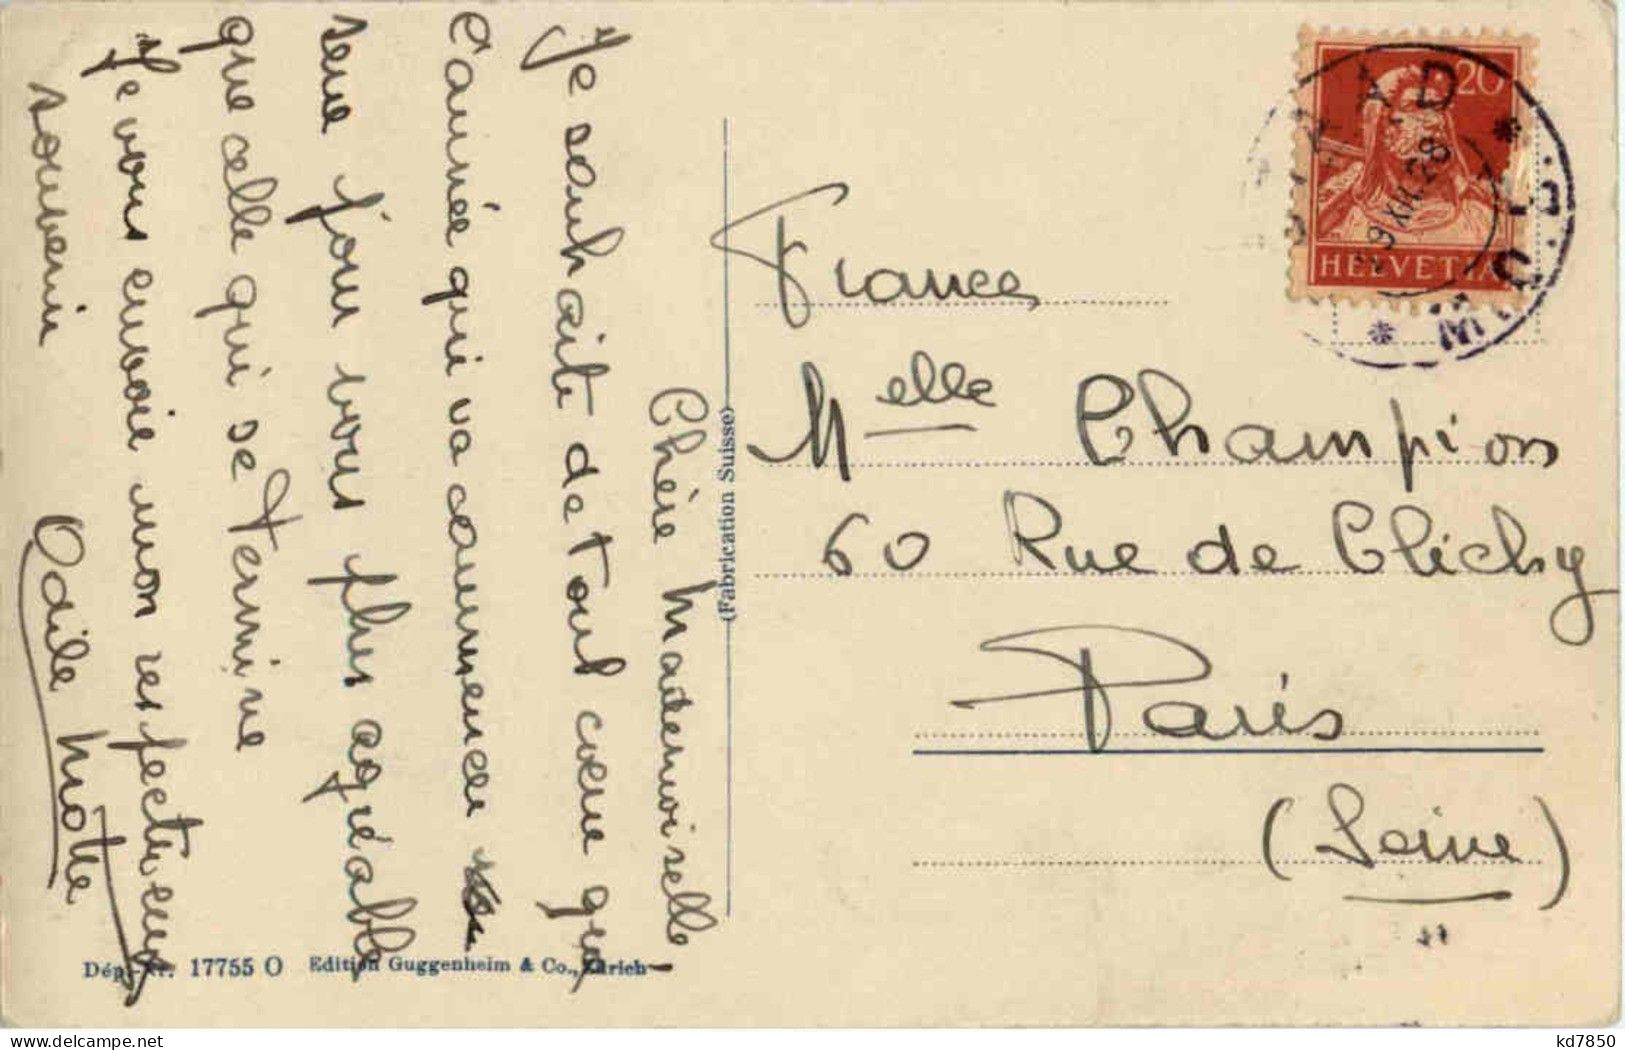 Chère Mademoiselle
Je souhaite de tout cœur que
l'année qui va commencer
sera pour vous plus agréable
que celle qui se termine
Je vous envoie mon respectueux
souvenir
Odile Motte
(Fabrication Suisse)
Dép. Nr. 17755 O Edition Guggenheim & Co., Zürich
20
HELVETIA
XII.28
France
Melle Champion
60 Rue de Clichy
Paris
(Seine)
delcampe.net
kd7850